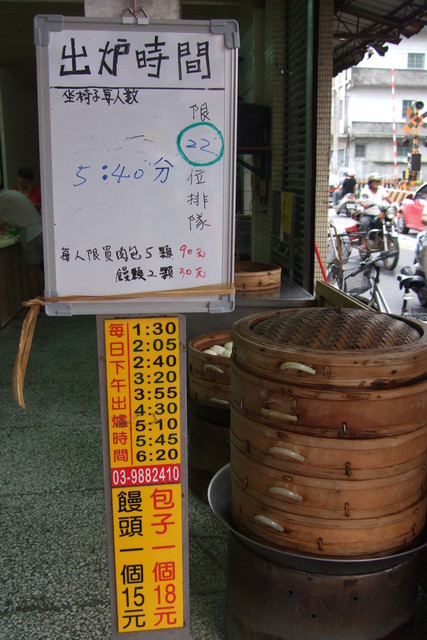 出炉時間
坐椅子算人數
限22位排隊
5:40分
每人限買肉包5顆90元
饅頭2顆30元
每日下午出爐時間
1:30
2:05
2:40
3:20
3:55
4:30
5:10
5:45
6:20
03-9882410
包子一個18元
饅頭一個15元